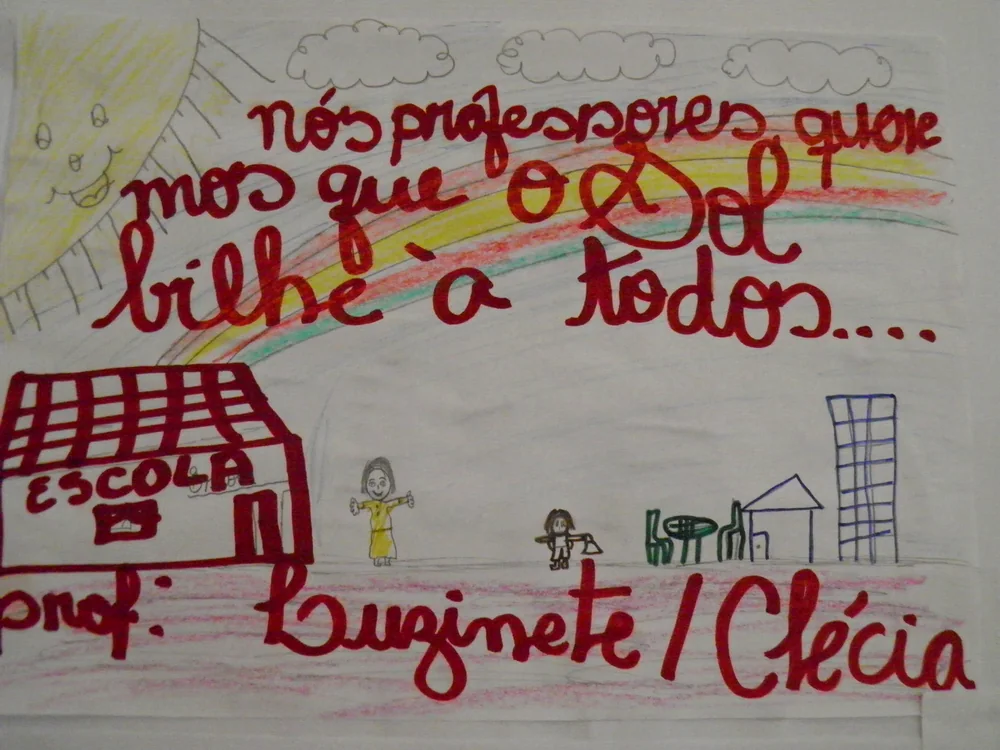 nós professores quere
mos que o Sol
bilhe à todos....
ESCOLA
prof: Luzinete / Clécia